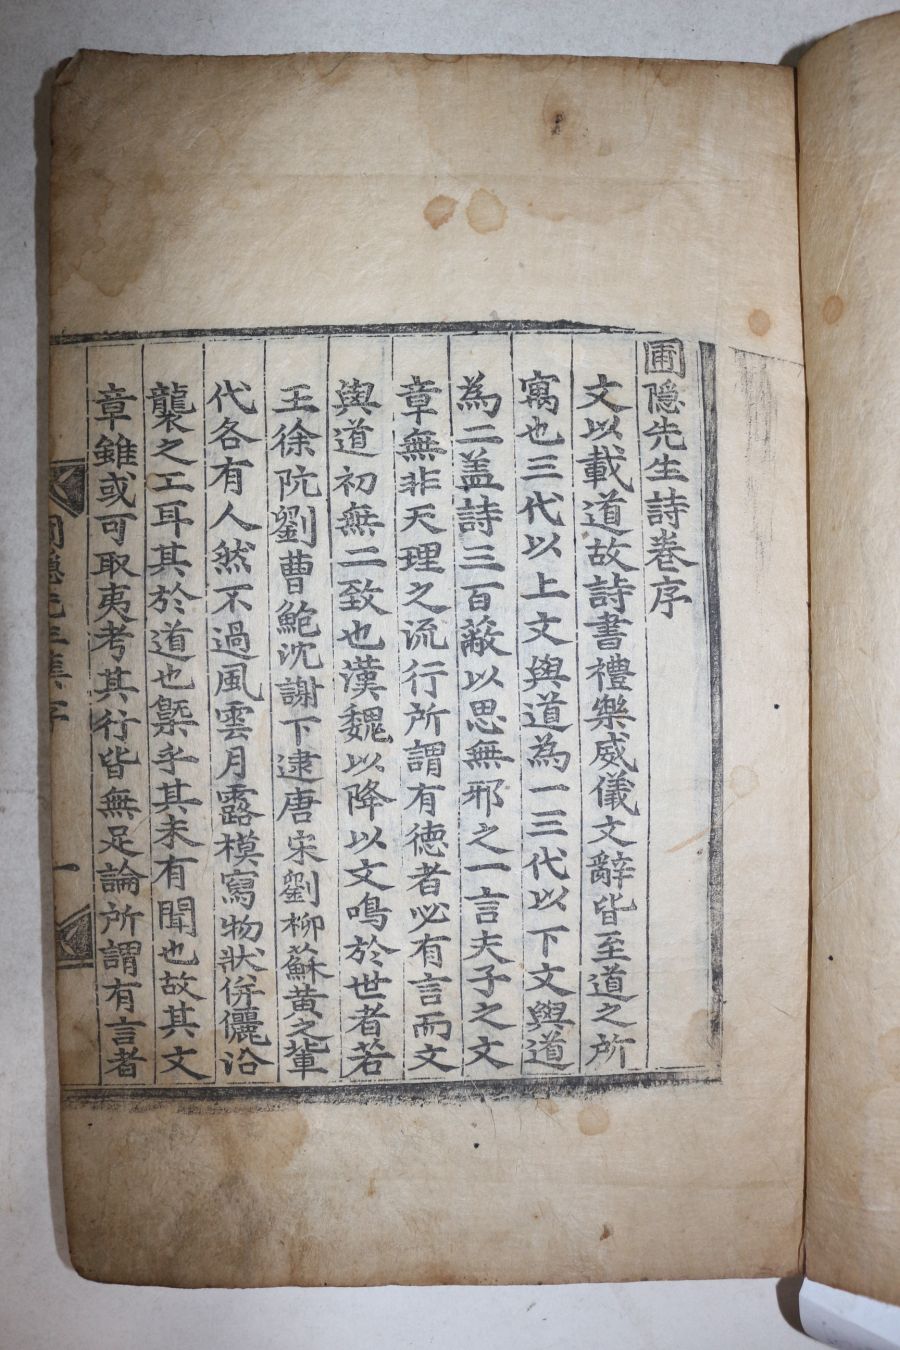 圃隠先生詩卷序
文以載道故詩書禮樂威儀文辭皆至道之所
寓也三代以上文與道為一三代以下文與道
為二盖詩三百蔽以思無邪之一言夫子之文
章無非天理之流行所謂有德者必有言而文
與道初無二致也漢魏以降以文鳴於世者若
王徐阮劉曹鮑沈謝下逮唐宋劉柳蘇黃之輩
代各有人然不過風雲月露模寫物狀併儷沿
襲之工耳其於道也槩乎其未有聞也故其文
章雖或可取夷考其行皆無足論所謂有言者
圃隠先生集序
一